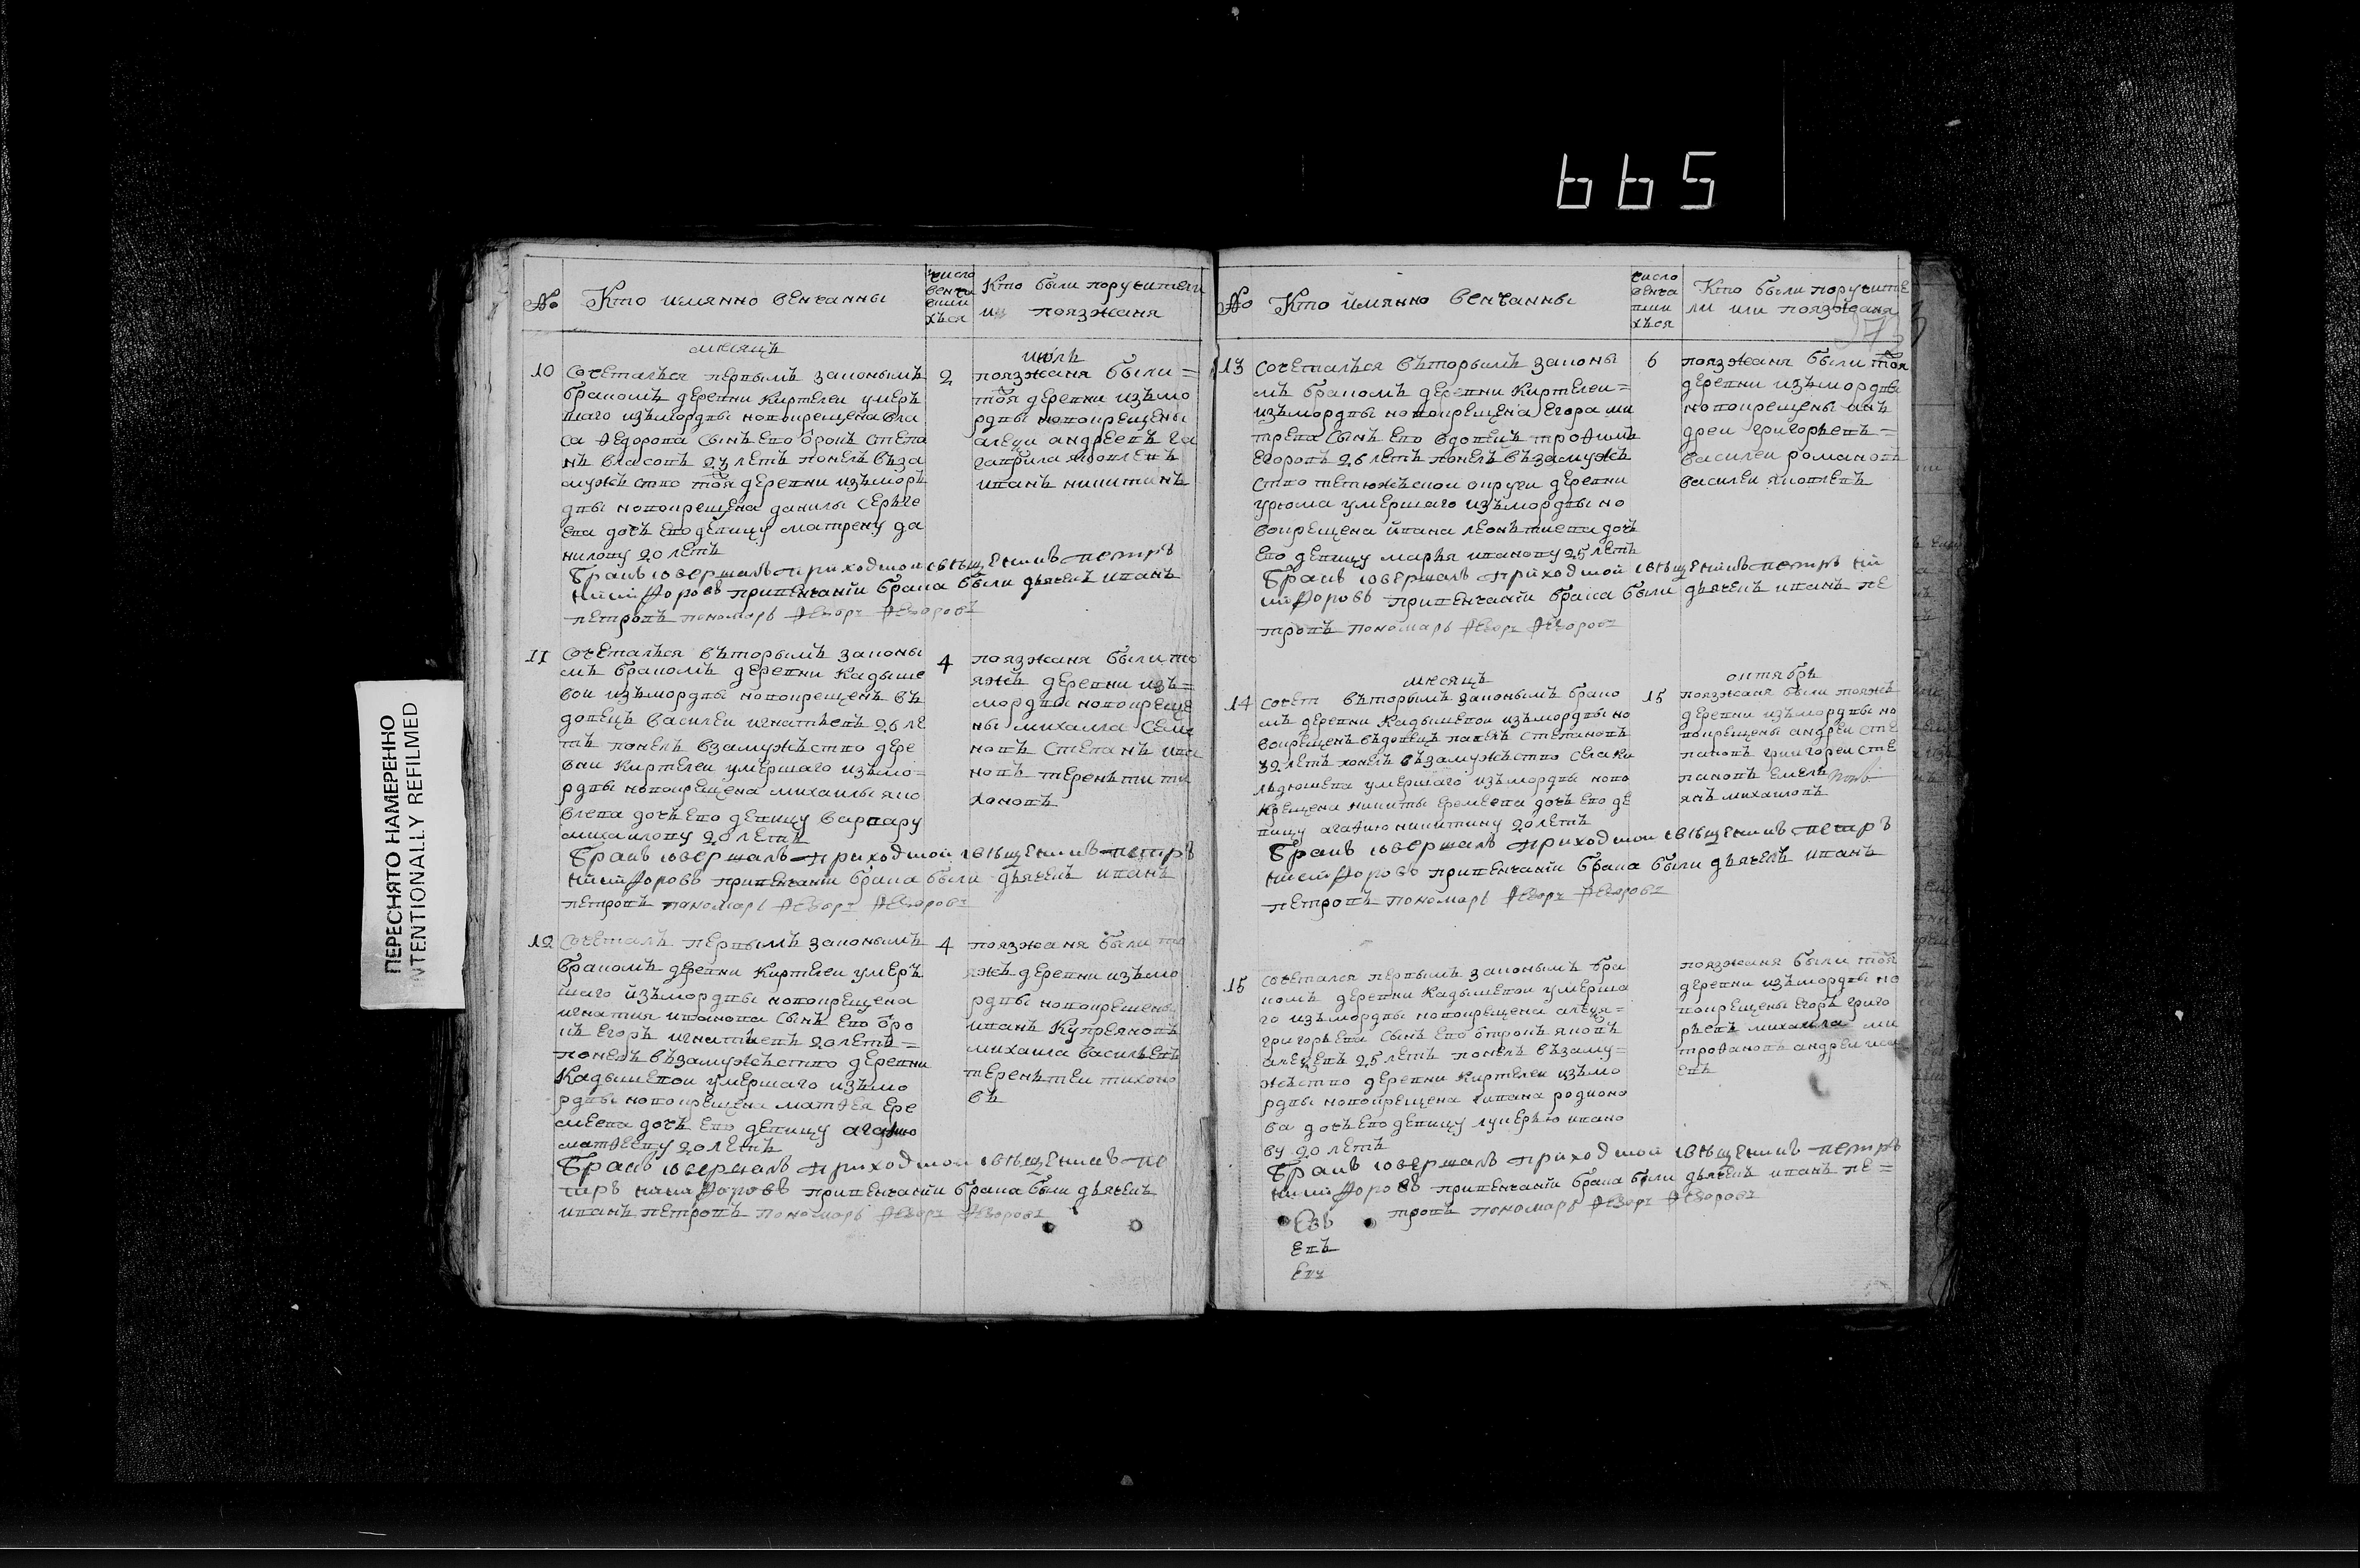 665
ПЕРЕСНЯТО НАМЕРЕННО
INTENTIONALLY REFILMED
№ Кто имянно венчанны
число венча вший хъся
Кто были поручители
или поязжаня
месяцъ июль
10 Сочеталъся первымъ законымъ
бракомъ деревни Киртелеи умеръ
шаго изъмордвы новокрещена Вла
са Федорова сынъ Ево брокъ Степа
нъ Власовъ 23 летъ понелъ въза
мужъство тоя деревни изъморъ
двы новокрещена данилы Серъге
ева дочь Ево девицу матрену да
нилову 20 летъ
2
поязжаня были =
тоя деревни изъмо
рдвы новокрещены
алеѯи андреевъ га
гаврила яковлевъ
иванъ никитинъ
бракъ совершалъ приходской свѣщеникъ петръ
никифоровъ привенчании брака были дьячекъ иванъ
петровъ пономарь Федоръ Федоровъ
11 Сочеталъся въторымъ законы
мъ бракомъ деревни Кадыше
вои изъмордвы новокрещенъ въ
довецъ Василеи игнатьевъ 26 ле
тъ понелъ взамужъство дере
вни Киртелеи умершаго изъмо=
рдвы новокрещена михаилы яко
влева дочь Ево девицу варвару
михаилову 20 летъ
4
поязжаня были то
яжъ деревни изъ=
мордвы новокреще
ны михаила Семе
новъ Степанъ ива
новъ терентии ти
хоновъ
бракъ совершалъ приходской свѣщеникъ петръ
никифоровъ привенчании брака были дьячекъ иванъ
петровъ пономарь Федоръ Федоровъ
12 Сочеталъ первымъ законымъ
бракомъ деревни Киртелеи умеръ
шаго изъмордвы новокрещена
игнатия иванова сынъ Ево бро
къ Егоръ игнатьевъ 20 летъ=
понелъ възамужъство деревни
Кадышевои умершаго изъмо
рдвы новокрещена матфея Ере
меева дочь Ево девицу агафию
матфееву 20 летъ
4
поязжаня были то
яжъ деревни изъмо
рдвы новокрещены
иванъ Купреяновъ
михаила васильевъ
теренътеи тихоно
въ
бракъ совершалъ приходской свѣщеникъ пе
тръ никифоровъ привенчании брака были дьячекъ
иванъ петровъ пономарь Федоръ Федоровъ
№ Кто имянно венчанны
число венча вший хъся
Кто были поручите
ли или поязжаня
13 Сочеталъся въторымъ законы
мъ бракомъ деревни Киртелеи=
изъмордвы новокрещена Егора ми
трева сынъ Ево вдовецъ трофимъ
Егоровъ 26 летъ понелъ възамужъ
ство тетюжъскои округи деревни
урюма умершаго изъмордвы но
вокрещена ивана леонътиева дочь
Ево девицу маръя иванову 25 летъ
6
поязжаня были тоя
деревни изъмордвы
новокрещены анъ
дреи григорьевъ=
василеи романовъ
василеи яковлевъ
бракъ совершалъ приходской свѣщеникъ петръ ни
кифоровъ привенчании брака были дьячекъ иванъ пе
тровъ пономарь Федоръ Федоровъ
месяцъ октябрь
14 сочет въторымъ законымъ брако
мъ деревни Кадышевои изъмордвы но
вокрещенъ въдовецъ павелъ Степановъ
32 летъ понелъ възамужъство Села Ки
льдюшева умершаго изъмордвы ново
крещена никиты Еремеева дочь Ево де
вицу агафию никитину 20 летъ
15
поязжаня были тояжъ
деревни изъмордвы но
вокрещены андреи сте
пановъ григореи сте
пановъ Емель
янъ михаиловъ
бракъ совершалъ приходской свѣщеникъ петръ
никифоровъ привенчании брака были дьячекъ иванъ
петровъ пономарь Федоръ Федоровъ
15 сочетался первымъ законымъ бра
комъ деревни Кадышевои умерша
го изъмордвы новокрещена алеѯя=
григорьева сынъ Ево отрокъ яковъ
алеѯеевъ 25 летъ понелъ възаму=
жъство деревни Киртелеи изъмо
рдвы новокрещена ивана родионо
ва дочь Ево девицу лукерью ивано
ву 20 летъ
поязжаня были тоя
деревни изъмордвы но
вокрещены Егоръ григо
рьевъ михаила ми
трофановъ андреи
евъ
бракъ совершалъ приходской свѣщеникъ петръ
никифоровъ привенчании брака были дьячекъ иванъ пе=
тровъ пономарь Федоръ Федоровъ
евъ